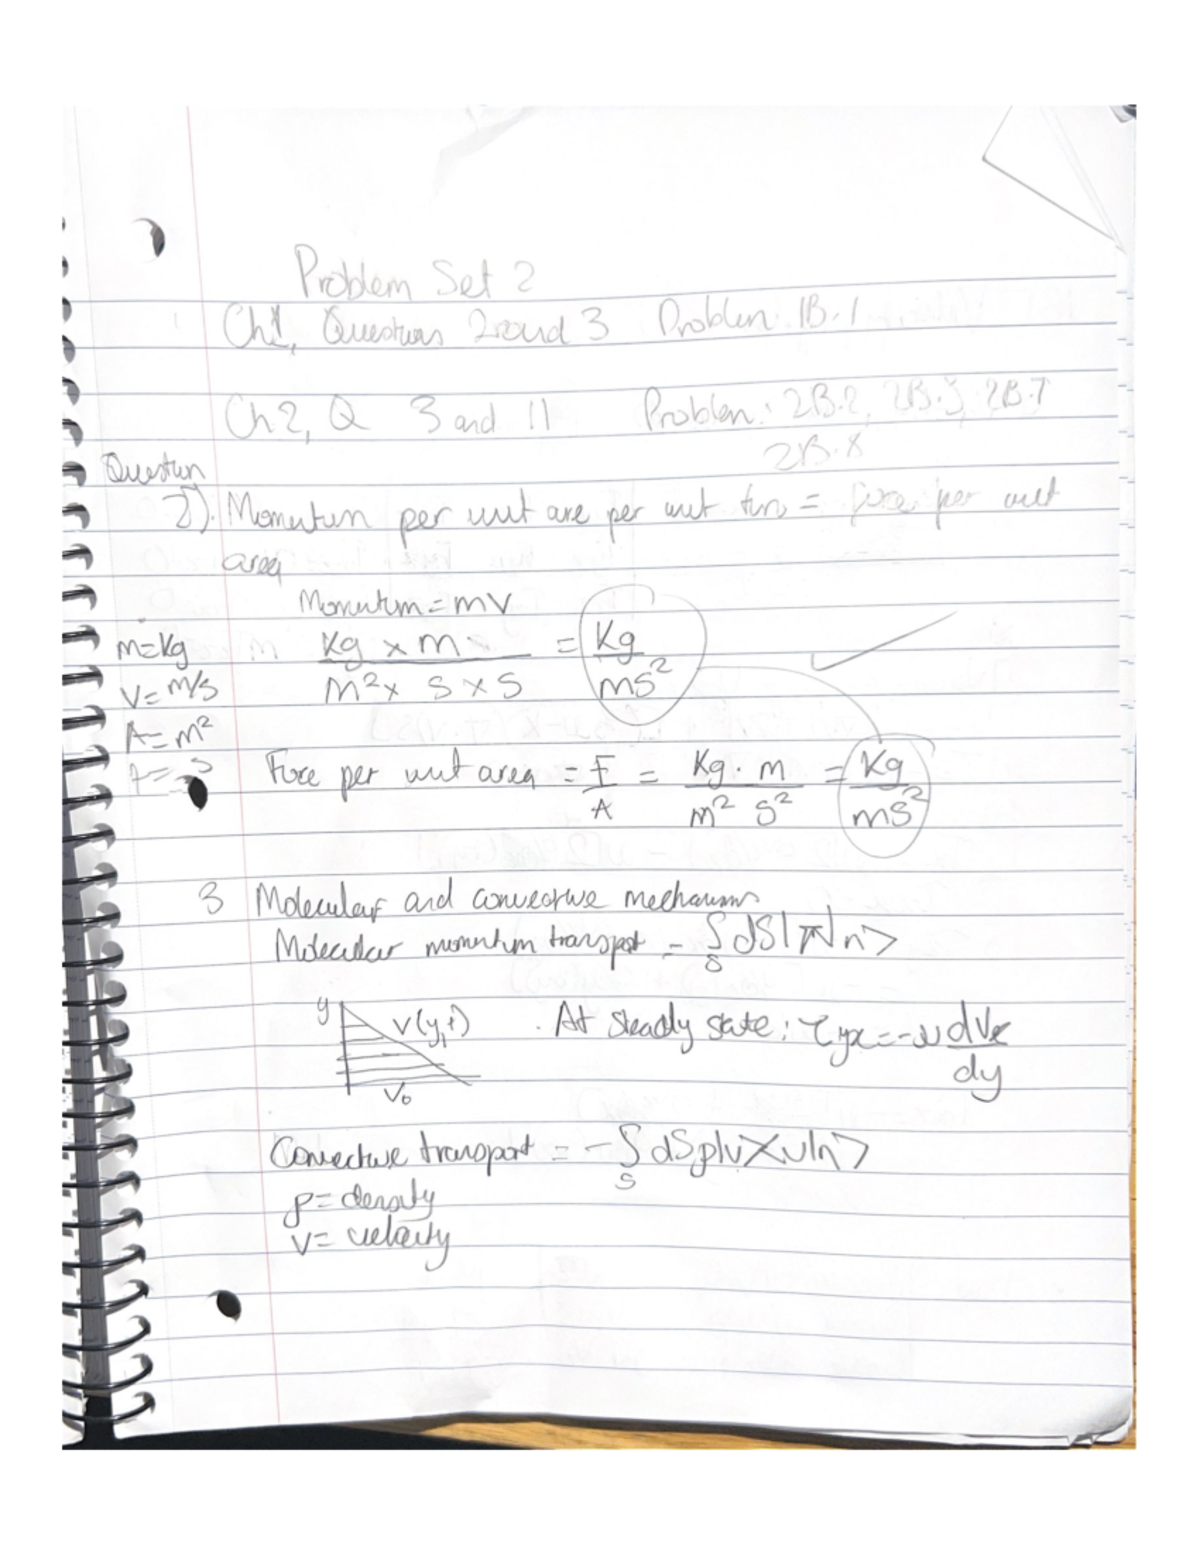 Problem Set 2
Ch1, Questions 2 and 3 Problem: 1B.1
Ch2, Q 3 and 11 Problem: 2B.2, 2B.3, 2B.7
2B.8
Question
2). Momentum per unit are per unit tim = force per unit
area
Momentum = mV
m=kg kg × m = kg
V=m/s m²× s × s ms²
A=m²
t= s Force per unit area = F = kg · m = kg
A m² s² ms²
3 Molecular and convective mechanisms
Molecular momentum transport = ∫ dS|π|n>
S
y V(y,t) . At steady state: τyx = -μ dVx
dy
V₀
Convective transport = - ∫ dSρ|v><v|n>
S
ρ = density
V = velocity